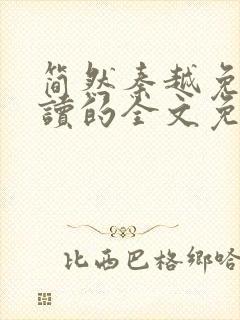 简然秦越免
讀的全文免
比西巴格鄉哈